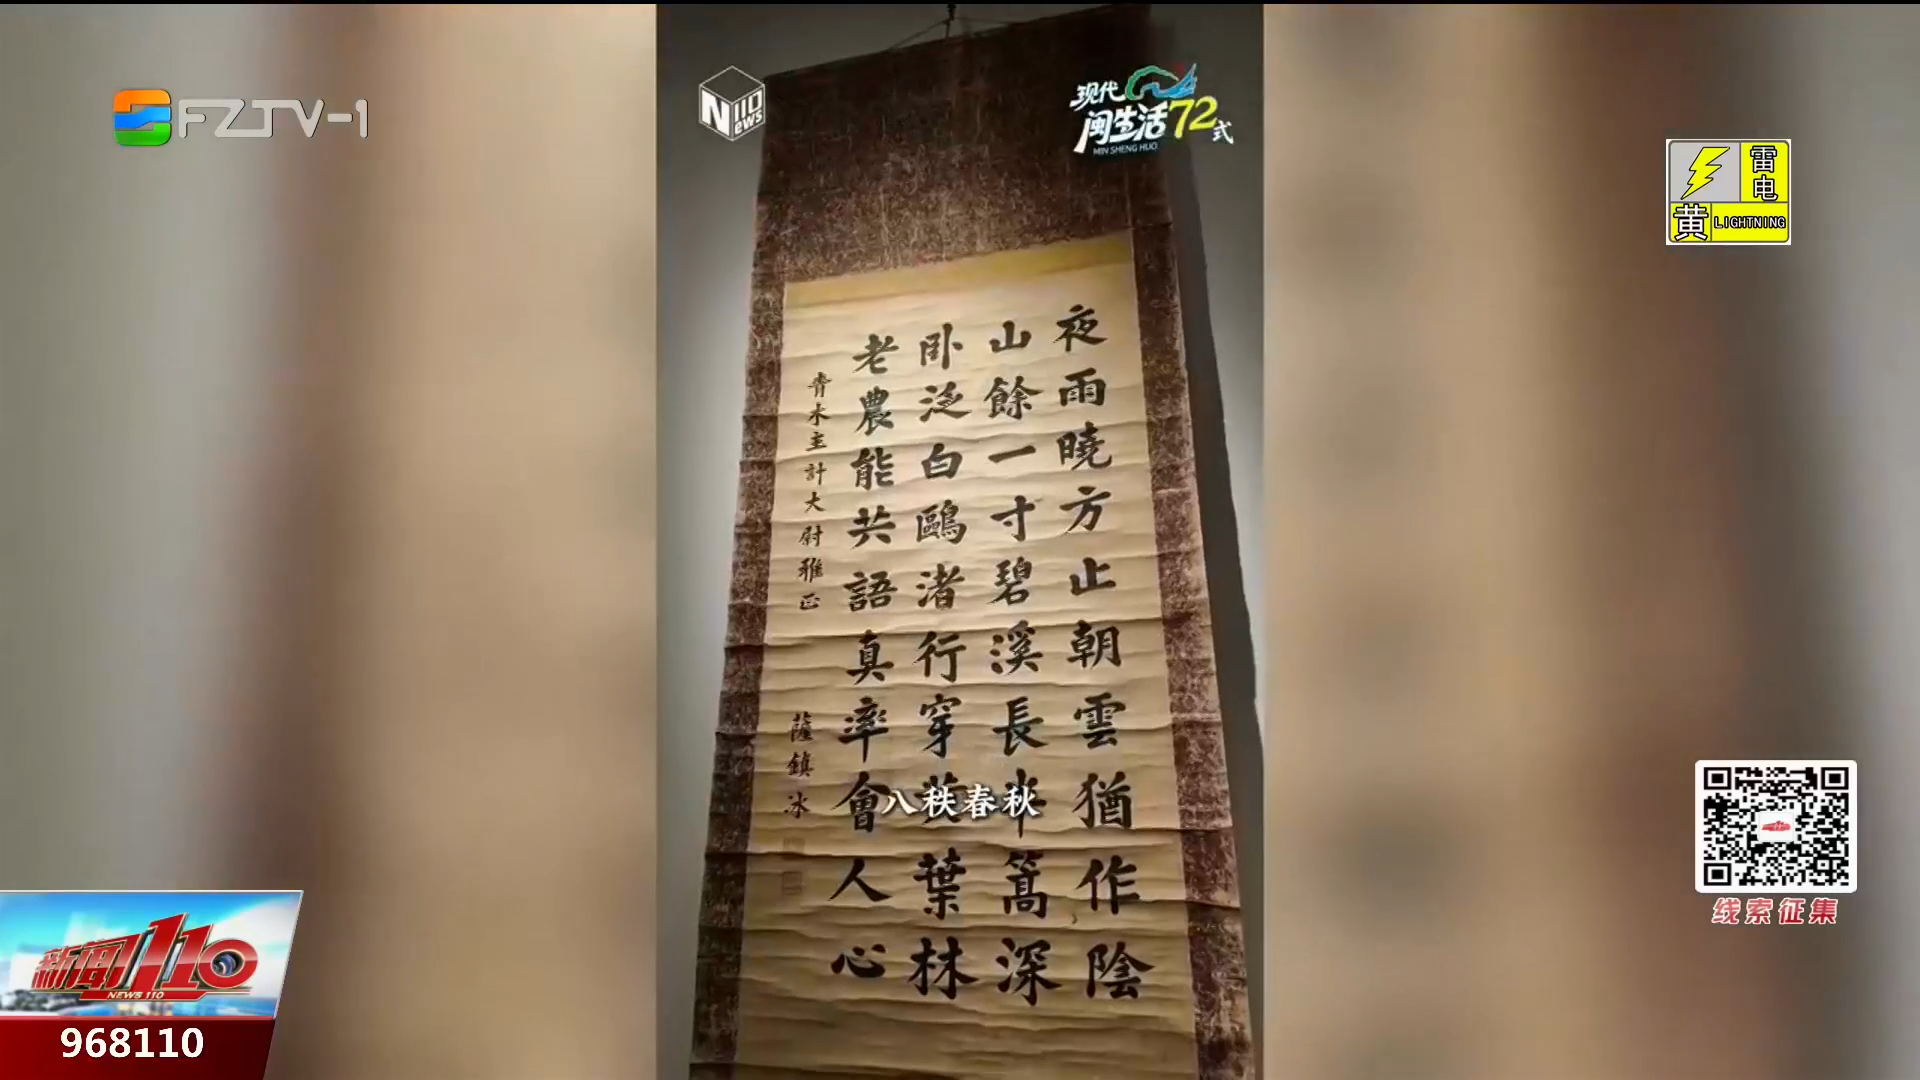 FZTV-1
N110
ews
现代
闽生活72式
MIN SHENG HUO
雷电
黄
LIGHTNING
夜雨曉方止朝雲猶作陰
山餘一寸碧溪長半篙深
卧泛白鷗渚行穿黄葉林
老農能共語真率會人心
青木主計大尉雅正
薩鎮冰
八秩春秋
线索征集
新闻110
NEWS 110
968110